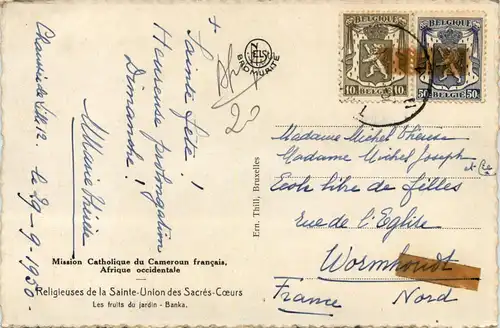 +
Sainte fête !
Heureuse prolongation
Dimanche !
M Marie Thérèse
le 29-9-1950
20
NELS
BROMURITE
BELGIQUE
10 10
BELGIE
BELGIQUE
50 50
BELGIE
Ern. Thill, Bruxelles
Madame Michel Thérèse
Madame Michel Joseph
et Cie
Ecole libre de filles
rue de l'Eglise
Wormhoudt
France Nord
Mission Catholique du Cameroun français,
Afrique occidentale
Religieuses de la Sainte-Union des Sacrés-Cœurs
Les fruits du jardin - Banka.